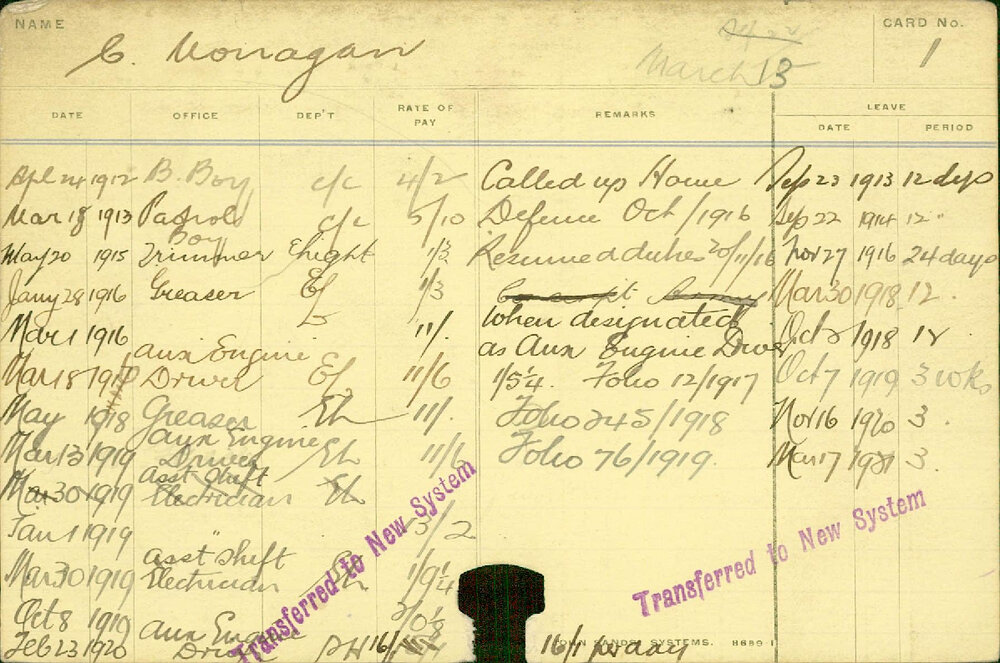 NAME
C. Monagan
March 13
CARD No.
1
DATE OFFICE DEP'T RATE OF PAY REMARKS LEAVE
DATE PERIOD
Apl 24 1912 B. Boy c/c 4/2 Called up Home Sep 23 1913 12 dys
Mar 18 1913 Patrol c/c 5/10 Defence Oct/1916 Sep 22 1914 12 "
Boy
May 20 1915 Trimmer Elight 1/3 Resumed duties 20/11/16 Nov 27 1916 24 days
Jany 28 1916 Greaser El 1/3 Mar 30 1918 12 "
Mar 1 1916 11/. When designated Oct 1918 12
Aux Engine as Aux Engine Driver
Mar 18 Driver El 11/6 1/5¼. Folio 12/1917 Oct 7 1919 3 wks
May 1918 Greaser El 11/. Folio 245/1918 Nov 16 1920 3.
Aux Engine
Mar 13 1919 Driver El 11/6 Folio 76/1919. Mar 17 1921 3.
Asst Shift
Mar 30 1919 Electrician El
Jan 1 1919 " 13/2
Asst Shift
Mar 30 1919 Electrician 1/9¼
Oct 8 1919 2/0½
Aux Engine
Feb 23 1920 Driver PH 16/1 16/1 per day
Transferred to New System
Transferred to New System
JOHN SANDS SYSTEMS. H689